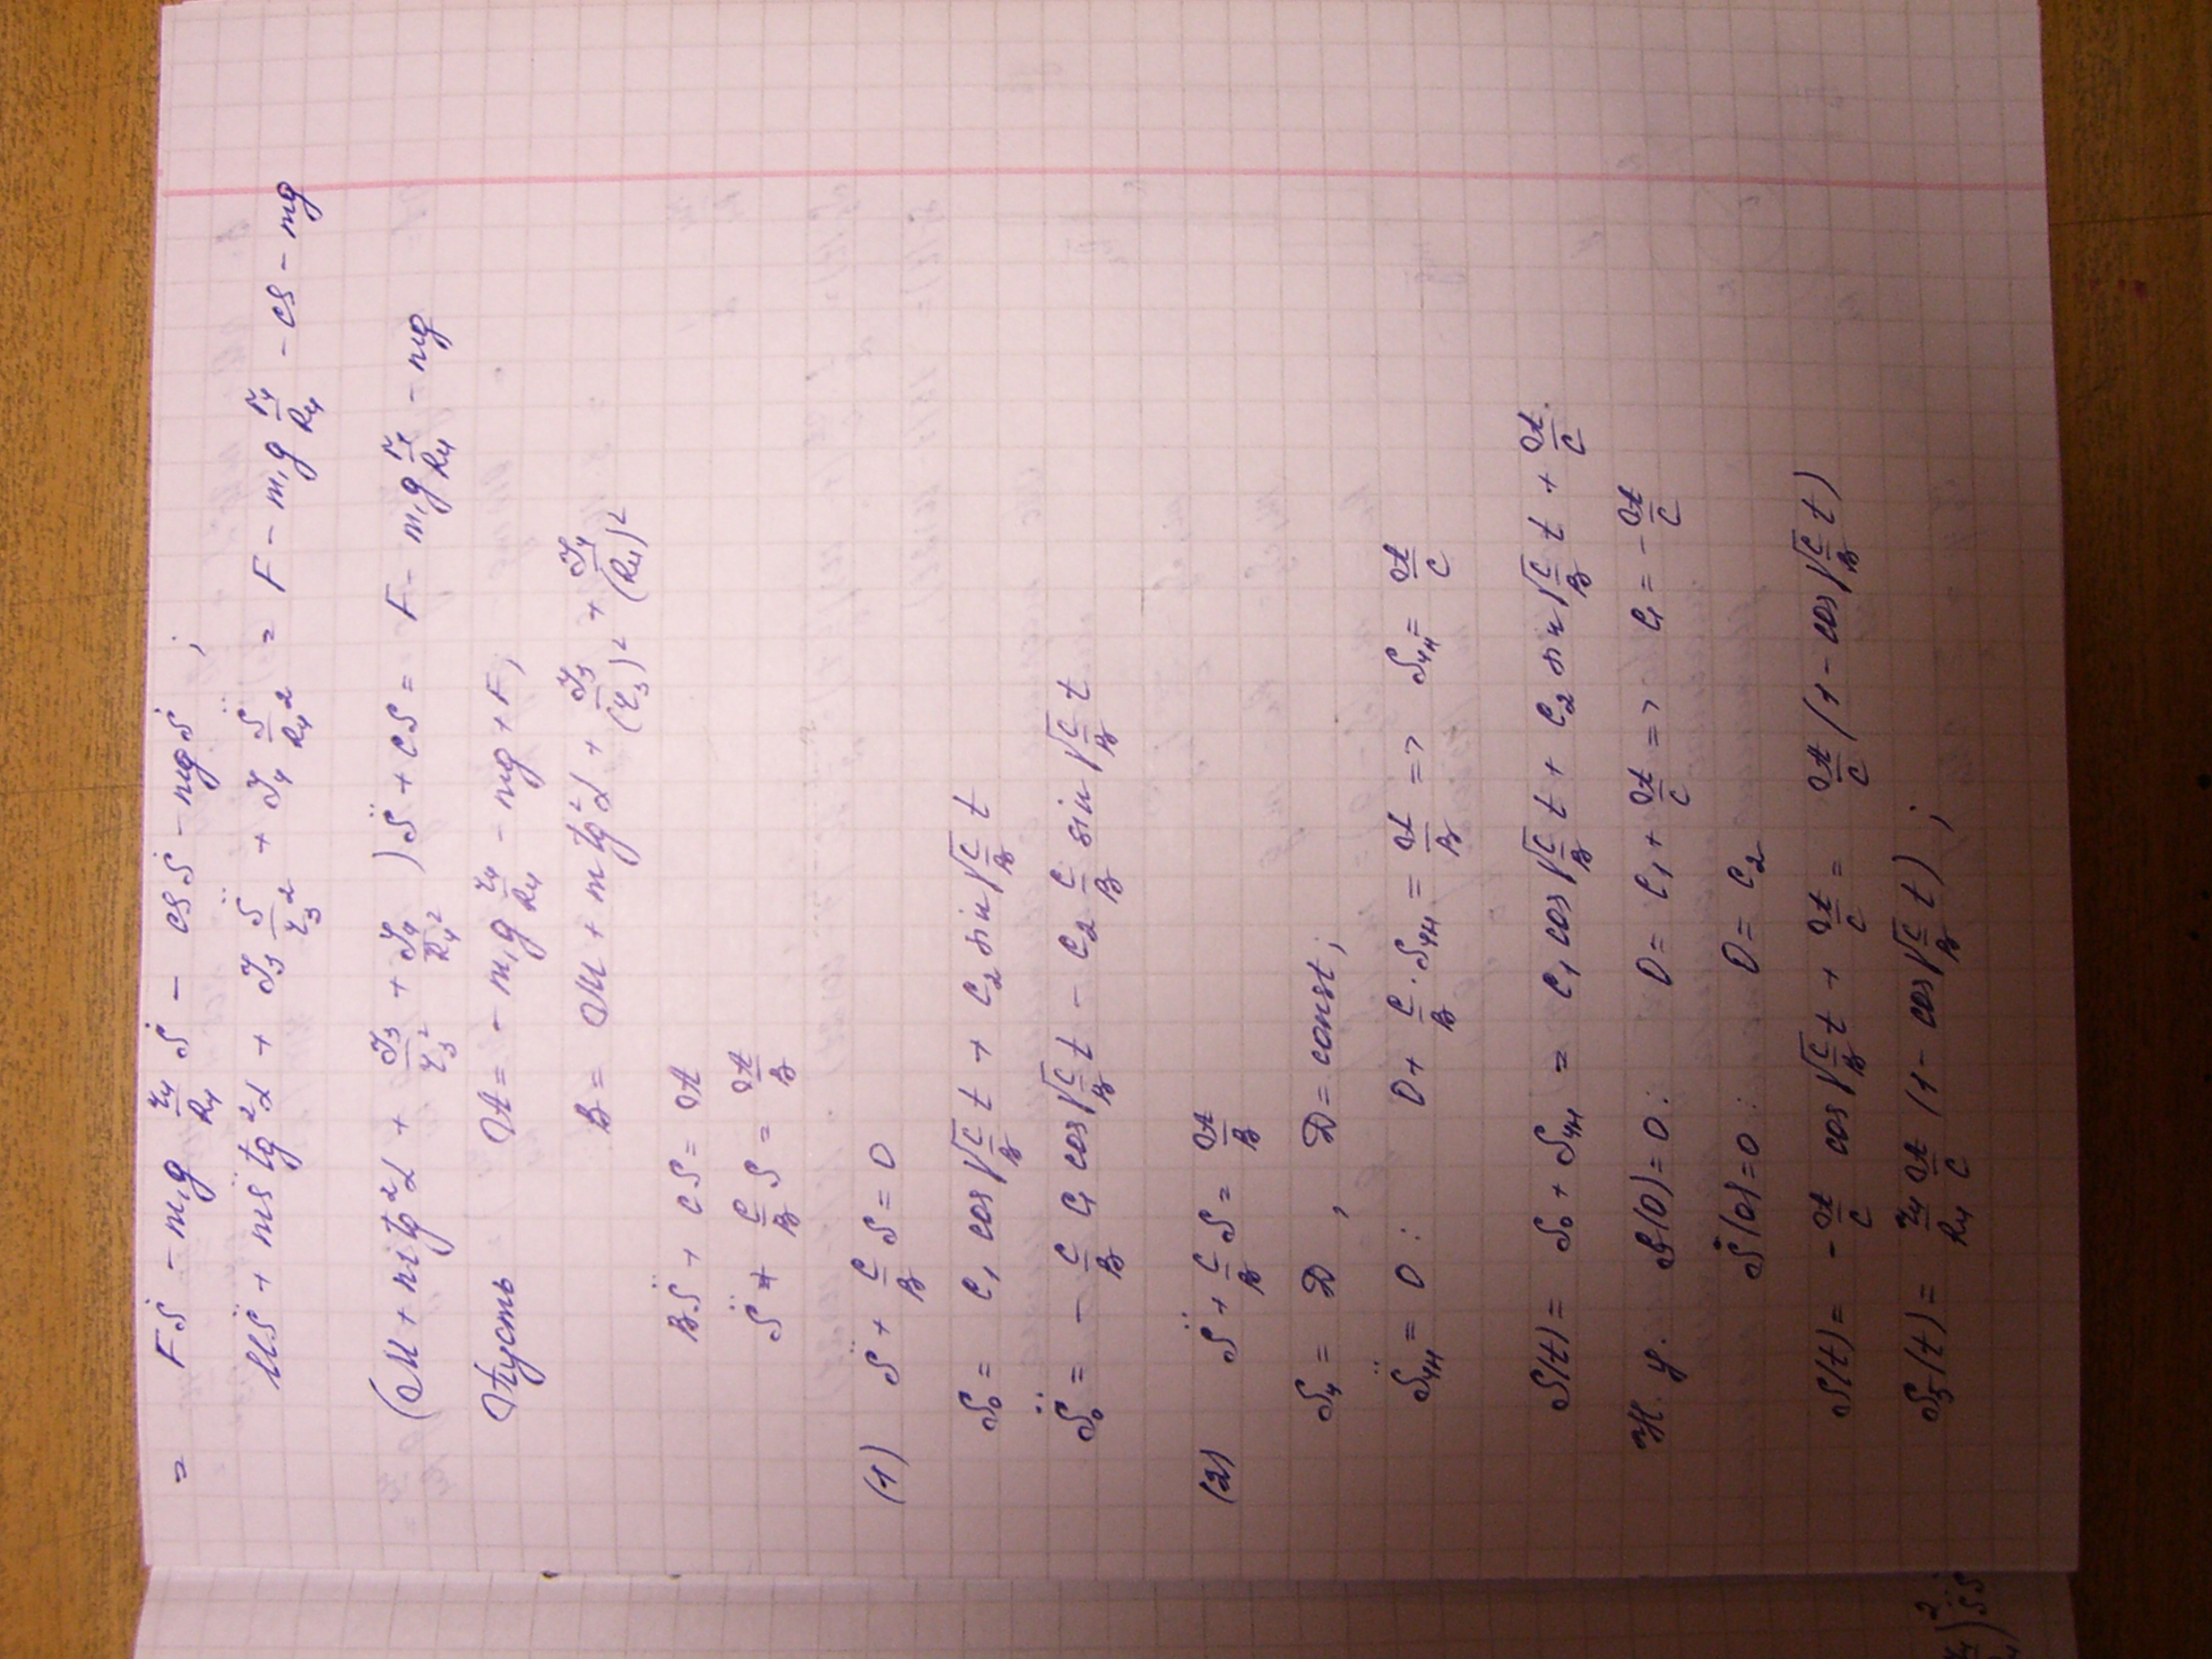 = FṠ - m₁g r₄/R₄ Ṡ - cSṠ - mgṠ ;
MS̈ + mS̈ tg²α + J₃ S̈/r₃² + J₄ S̈/R₄² = F - m₁g r₄/R₄ - cS - mg
(M + m tg²α + J₃/r₃² + J₄/R₄²) S̈ + cS = F - m₁g r₄/R₄ - mg
Пусть A = - m₁g r₄/R₄ - mg + F,
B = M + m tg²α + J₃/(r₃)² + J₄/(R₄)²
BS̈ + cS = A
S̈ + C/B S = A/B
(1) S̈ + C/B S = 0
S₀ = C₁ cos √(C/B) t + C₂ sin √(C/B) t
S̈₀ = - C/B C₁ cos √(C/B) t - C₂ C/B sin √(C/B) t
(2) S̈ + C/B S = A/B
Sч = D , D = const ;
S̈чн = 0 : 0 + C/B · Sчн = A/B => Sчн = A/C
S(t) = S₀ + Sчн = C₁ cos √(C/B) t + C₂ sin √(C/B) t + A/C.
Н. у. S(0) = 0 : 0 = C₁ + A/C => C₁ = - A/C
Ṡ(0) = 0 : 0 = C₂
S(t) = - A/C cos √(C/B) t + A/C = A/C (1 - cos √(C/B) t)
S₅(t) = r₄/R₄ A/C (1 - cos √(C/B) t) ;